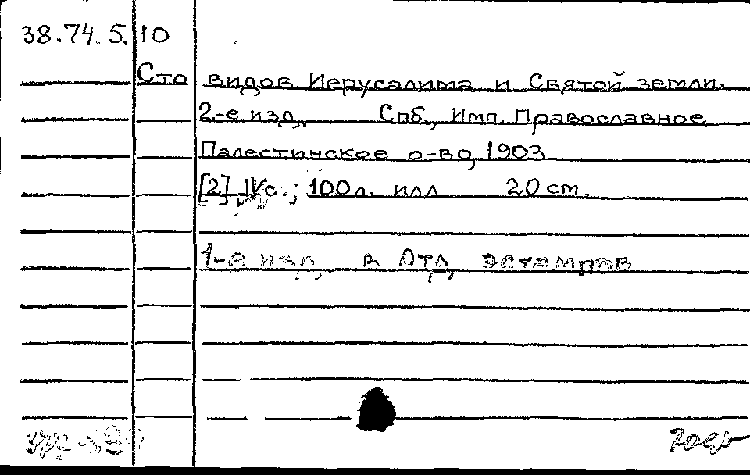 38.74.5.10
Сто видов Иерусалима и Святой земли.
2-е изд. Спб., Имп. Православное
Палестинское о-во, 1903
[2] IV с.; 100 л. илл 20 cm.
1-е изд. в Отд. эстампов